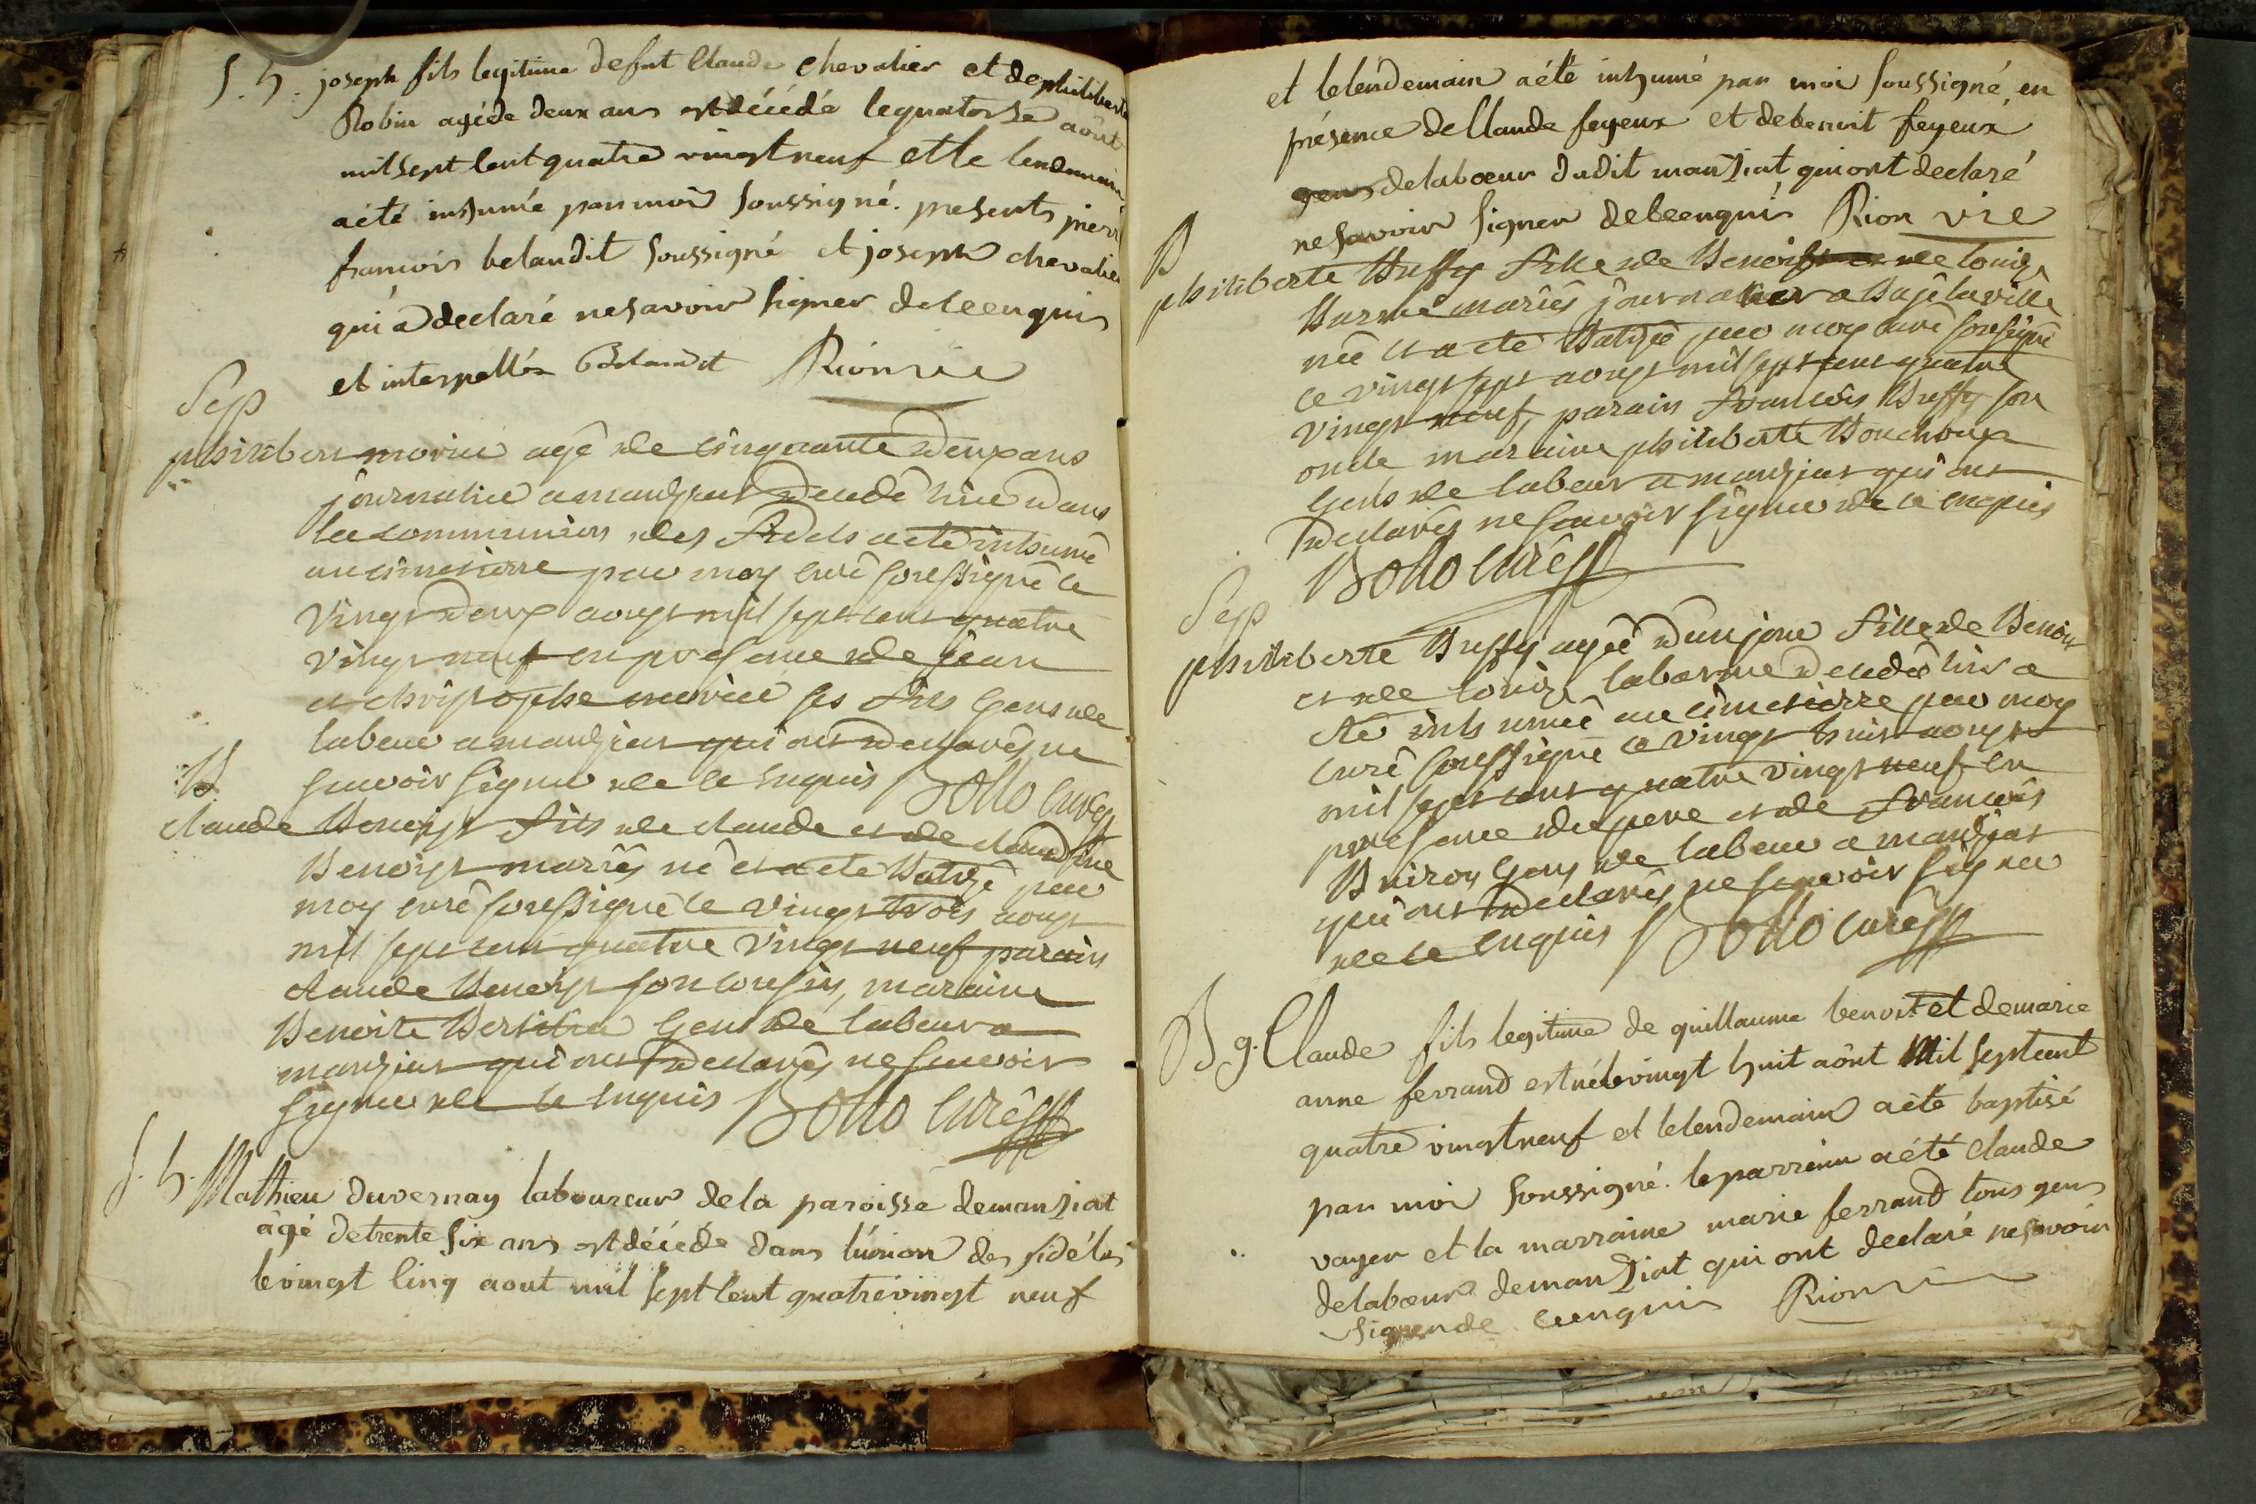 S. h. joseph fils legitime de fut Claude chevalier et de philiberte
Robin agé de deux ans est décédé le quatorze août
mil sept Cent quatre vingt neuf et le lendemain
a été inhumé par moi soussigné. presents pierre
francois belaudit soussigné et joseph chevalier
qui a declaré ne savoir signer de ce enquis
et interpellés Rionvie
Sep
philibert morier agé de cinquante deux ans
journalier a manziat decedé hier dans
la communion des fidels a eté inhumé
au cimetierre par moy curé soussigné le
vingt deux aoust mil sept cent quatre
vingt neuf en presence de jean
et christophe morier ses fils gens de
labeur a manziat qui ont declarés ne
scavoir signer de ce enquis Bollo curé
B
claude Benoist fils de claude et de claudine
Benoist mariés né et a eté Batizé par
moy curé soussigné le vingt trois aoust
mil sept cent quatre vingt neuf parain
claude Benoist son cousin, maraine
Benoite gens de labeur a
manziat qui ont declarés ne scavoir
signer de ce enquis Bollo curé
S. h. Mathieu duvernay laboureur de la paroisse de manziat
âgé de trente six ans est décédé dans l'union des fidéles
le vingt Cinq aout mil sept Cent quatre vingt neuf
et le lendemain a été inhumé par moi soussigné, en
présence de Claude feyeux et de benoit feyeux
gens de labœur dudit manziat qui ont declaré
ne savoir signer de ce enquis Rionvie
B
philiberte Buffy fille de Benoist et de louize
Barme mariés journalier a Bagé la ville
née et a eté Batizée par moy curé soussigné
le vingt sept aoust mil sept cent quatre
vingt neuf, parain francois Buffy son
oncle maraine philiberte Bouchoux
gens de labeur a manziat qui ont
declarés ne scavoir signer de ce enquis
Bollo curé
Sep
philiberte Buffy agée d'un jour fille de Benoit
et de louize labarme decedée hier a
eté inhumée au cimetierre par moy
curé soussigné le vingt huit aoust
mil sept cent quatre vingt neuf en
presence du pere et de francois
gens de labeur a manziat
qui ont declarés ne scavoir signer
de ce enquis Bollo curé
B g. Claude fils legitime de guillaume benoit et de marie
anne ferrand est né le vingt huit aôut Mil sept cent
quatre vingt neuf et le lendemain a été baptisé
par moi soussigné. le parrain a été claude
voyer et la marraine marie ferrand tous gens
de labœur de manziat qui ont declaré ne savoir
signer de ce enquis Rionvie